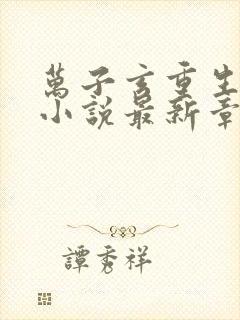 萬子玄重生
小說最新章
譚秀祥